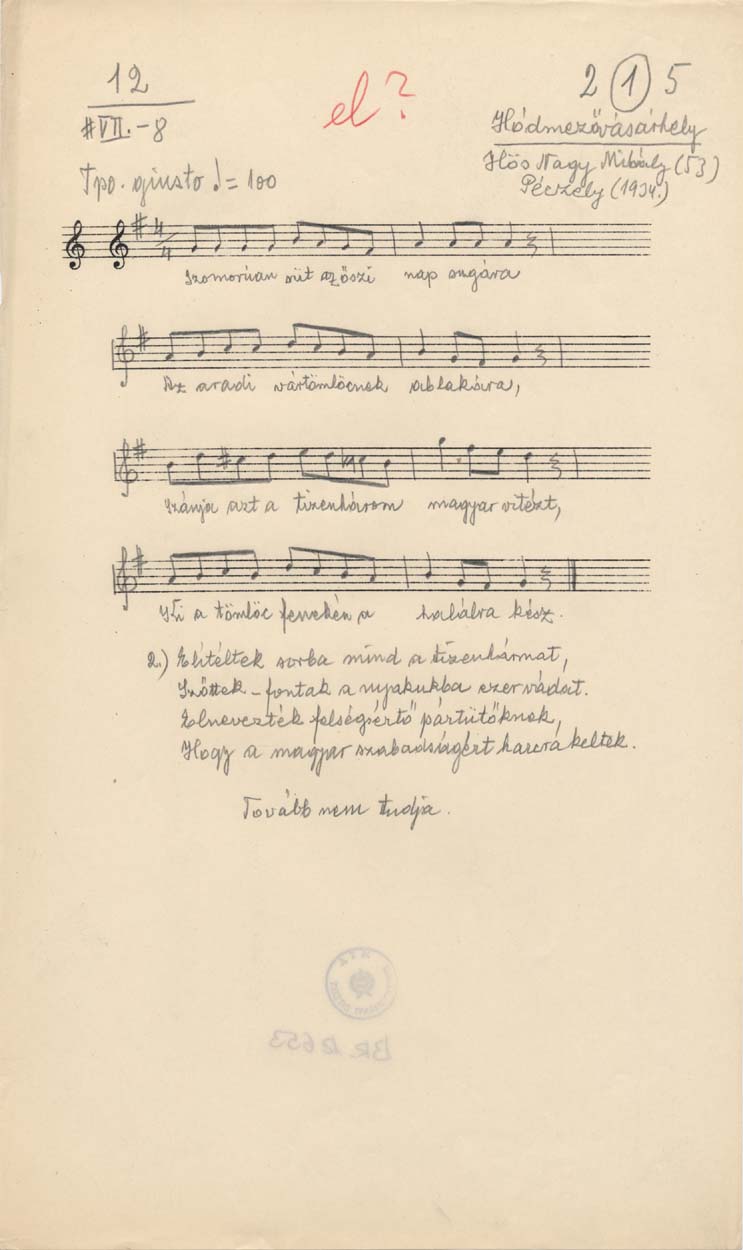 12
#VII.-8
el?
2 1 5
Hódmezővásárhely
Hős Nagy Mihály (53)
Péczely (1934.)
Tpo. giusto ♩= 100
4/4
Szomorúan süt az őszi nap sugára
Az aradi vártömlöcnek ablakára,
Szánja azt a tizenhárom magyar vitézt,
Ki a tömlöc fenekén a halálra kész.
2.) Elítéltek sorba mind a tizenhármat,
Szőttek-fontak a nyakukba ezer vádat.
Elnevezték felségsértő pártütőknek,
Hogy a magyar szabadságért harcra keltek.
Tovább nem tudja.
BR. 12653